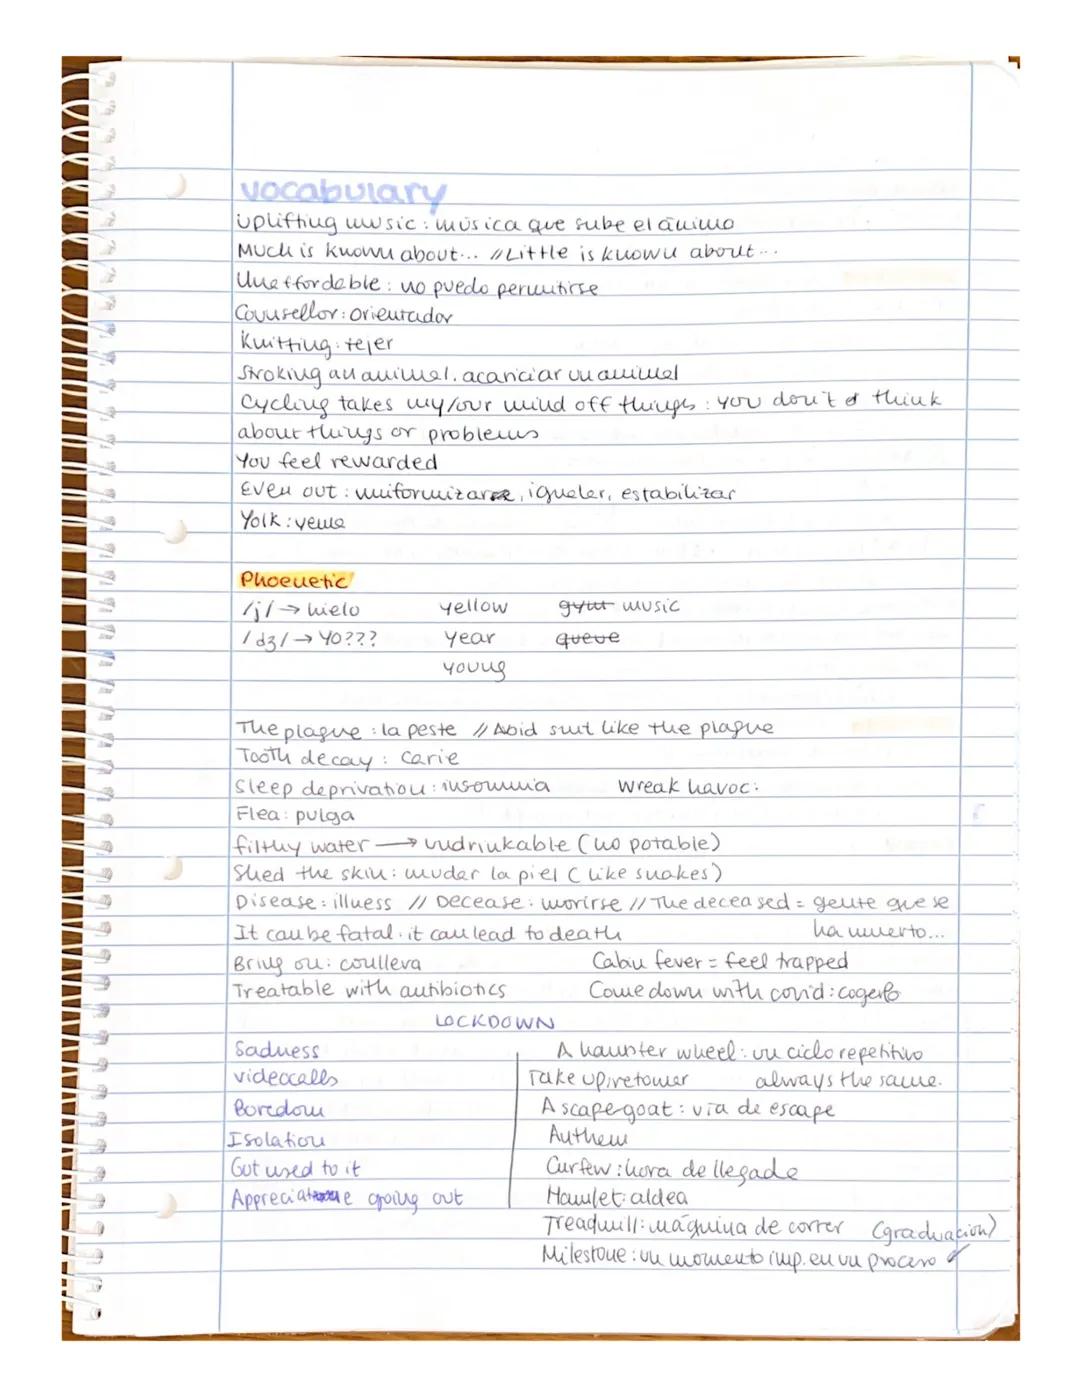 vocabulary
Uplifting music: música que sube el ánimo
Much is known about... // Little is known about...
Uneffordable: no puedo permitirse
Counsellor: orientador
Knitting: tejer
Stroking an animal. acariciar un animal
Cycling takes my/our mind off things: you don't think
about things or problems
You feel rewarded
Even out: uniformizar, igualar, estabilizar
Yolk: yema
Phoenetic
/j/ → hielo yellow gym music
/dʒ/ → Yo??? year queue
young
The plague: la peste // Aboid smt like the plague
Tooth decay: carie
Sleep deprivation: insomnia Wreak havoc:
Flea: pulga
filthy water → undrinkable (no potable)
Shed the skin: mudar la piel (like snakes)
Disease: illness // Decease: morirse // The deceased = gente que se
It can be fatal. it can lead to death ha muerto...
Bring on: conlleva Cabin fever = feel trapped
Treatable with antibiotics Come down with covid: cogerlo
LOCKDOWN
Sadness A hamster wheel: un ciclo repetitivo
videocalls Take up: retomar always the same.
Boredom A scapegoat: vía de escape
Isolation Anthem
Got used to it Curfew: hora de llegada
Appreciate going out Hamlet: aldea
Treadmill: máquina de correr (graduación)
Milestone: un momento imp. en un proceso